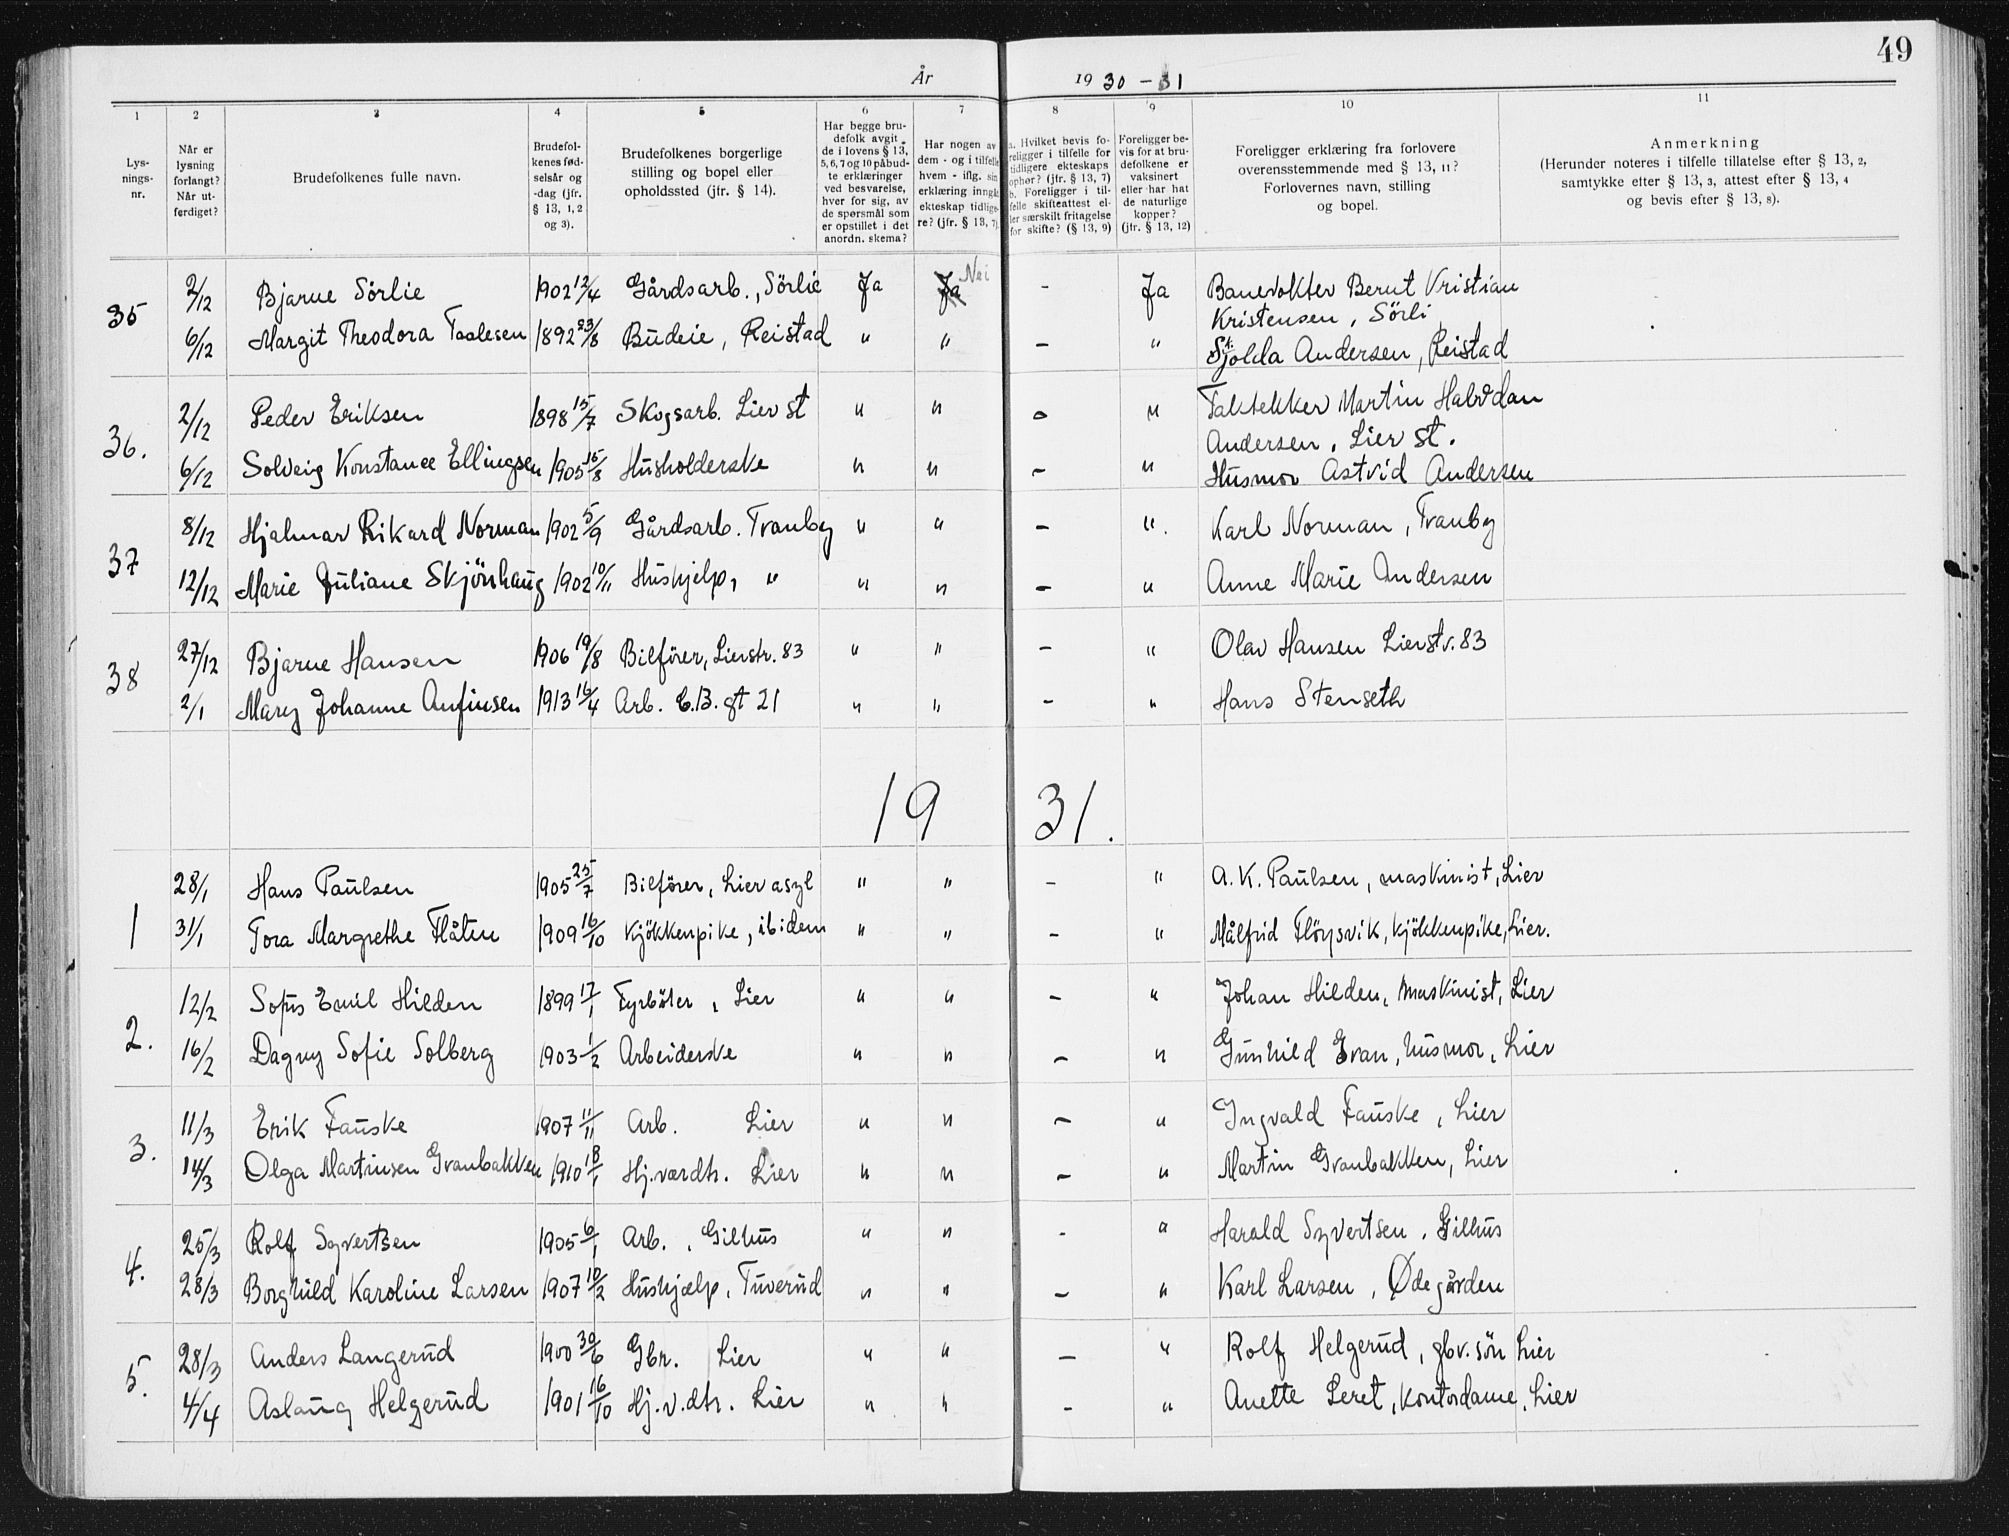 49
År 1930-31
1 2 3 4 5 6 7 8 9 10 11
Lysnings-nr.
Når er lysning forlangt? Når utferdiget?
Brudefolkenes fulle navn.
Brudefolkenes fødselsår og -dag (jfr. § 13, 1, 2 og 3).
Brudefolkenes borgerlige stilling og bopel eller opholdssted (jfr. § 14).
Har begge brudefolk avgit de i lovens § 13, 5, 6, 7 og 10 påbudte erklæringer ved besvarelse, hver for sig, av de spørsmål som er opstillet i det anordn. skema?
Har nogen av dem - og i tilfelle hvem - iflg. sin erklæring inngått ekteskap tidligere? (jfr. § 13, 7)
a. Hvilket bevis foreligger i tilfelle for tidligere ekteskaps ophør? (jfr. § 13, 7) b. Foreligger i tilfelle skifteattest eller særskilt fritagelse for skifte? (§ 13, 9)
Foreligger bevis for at brudefolkene er vaksinert eller har hat de naturlige kopper? (jfr. § 13, 12)
Foreligger erklæring fra forlovere overensstemmende med § 13, 11? Forlovernes navn, stilling og bopel.
Anmerkning (Herunder noteres i tilfelle tillatelse efter § 13, 2, samtykke efter § 13, 3, attest efter § 13, 4 og bevis efter § 13, 8).
35 2/12 Bjarne Sörlie 1902 12/4 Gårdsarb., Sörlie Ja Ja Nei - Ja Banevokter Bernt Kristian Kristensen, Sörli
6/12 Margit Theodora Taalesen 1892 23/8 Budeie, Reistad " " - " Skjolda Andersen, Reistad
36. 2/12 Peder Eriksen 1898 15/7 Skogsarb. Lier st " " - " Taktekker Martin Halvdan Andersen, Lier st.
6/12 Solveig Konstanse Ellingsen 1905 15/8 Husholderske " " - " Husmor Astrid Andersen
37 8/12 Hjalmar Rikard Norman 1902 5/9 Gårdsarb. Tranby " " - " Karl Norman, Tranby
12/12 Marie Juliane Skjönhaug 1902 10/11 Hushjelp, " " " - " Anne Marie Andersen
38 27/12 Bjarne Hansen 1906 19/8 Bilförer, Lierstr. 83 " " - " Olav Hansen Lierstr. 83
2/1 Mary Johanne Anfinsen 1913 16/4 Arb. C.B. gt 21 " " - " Hans Stenseth
1931.
1 28/1 Hans Paulsen 1905 25/7 Bilförer, Lier asyl " " - " A.K. Paulsen, maskinist, Lier
31/1 Tora Margrethe Flåten 1909 16/10 Kjökkenpike, ibidem " " - " Målfrid Flöysvik, kjökkenpike, Lier.
2. 12/2 Sofus Emil Hilden 1899 17/1 Fyrböter, Lier " " - " Johan Hilden, maskinist, Lier
16/2 Dagny Sofie Solberg 1903 1/2 Arbeiderske " " - " Gunhild Evan, husmor, Lier
3. 11/3 Erik Fauske 1907 11/11 Arb. Lier " " - " Ingvald Fauske, Lier
14/3 Olga Martinsen Granbakken 1910 18/1 Hj.værdtr. Lier " " - " Martin Granbakken, Lier
4. 25/3 Rolf Syvertsen 1905 6/1 Arb., Gilhus " " - " Harald Syvertsen, Gilhus
28/3 Borghild Karoline Larsen 1907 10/2 Hushjælp, Tuverud " " - " Karl Larsen, Ødegården
5. 28/3 Anders Langerud 1900 30/6 Gbr. Lier " " - " Rolf Helgerud, gbr.sön Lier
4/4 Aslaug Helgerud 1901 16/10 Hj.v.dtr. Lier " " - " Anette Leret, kontordame, Lier